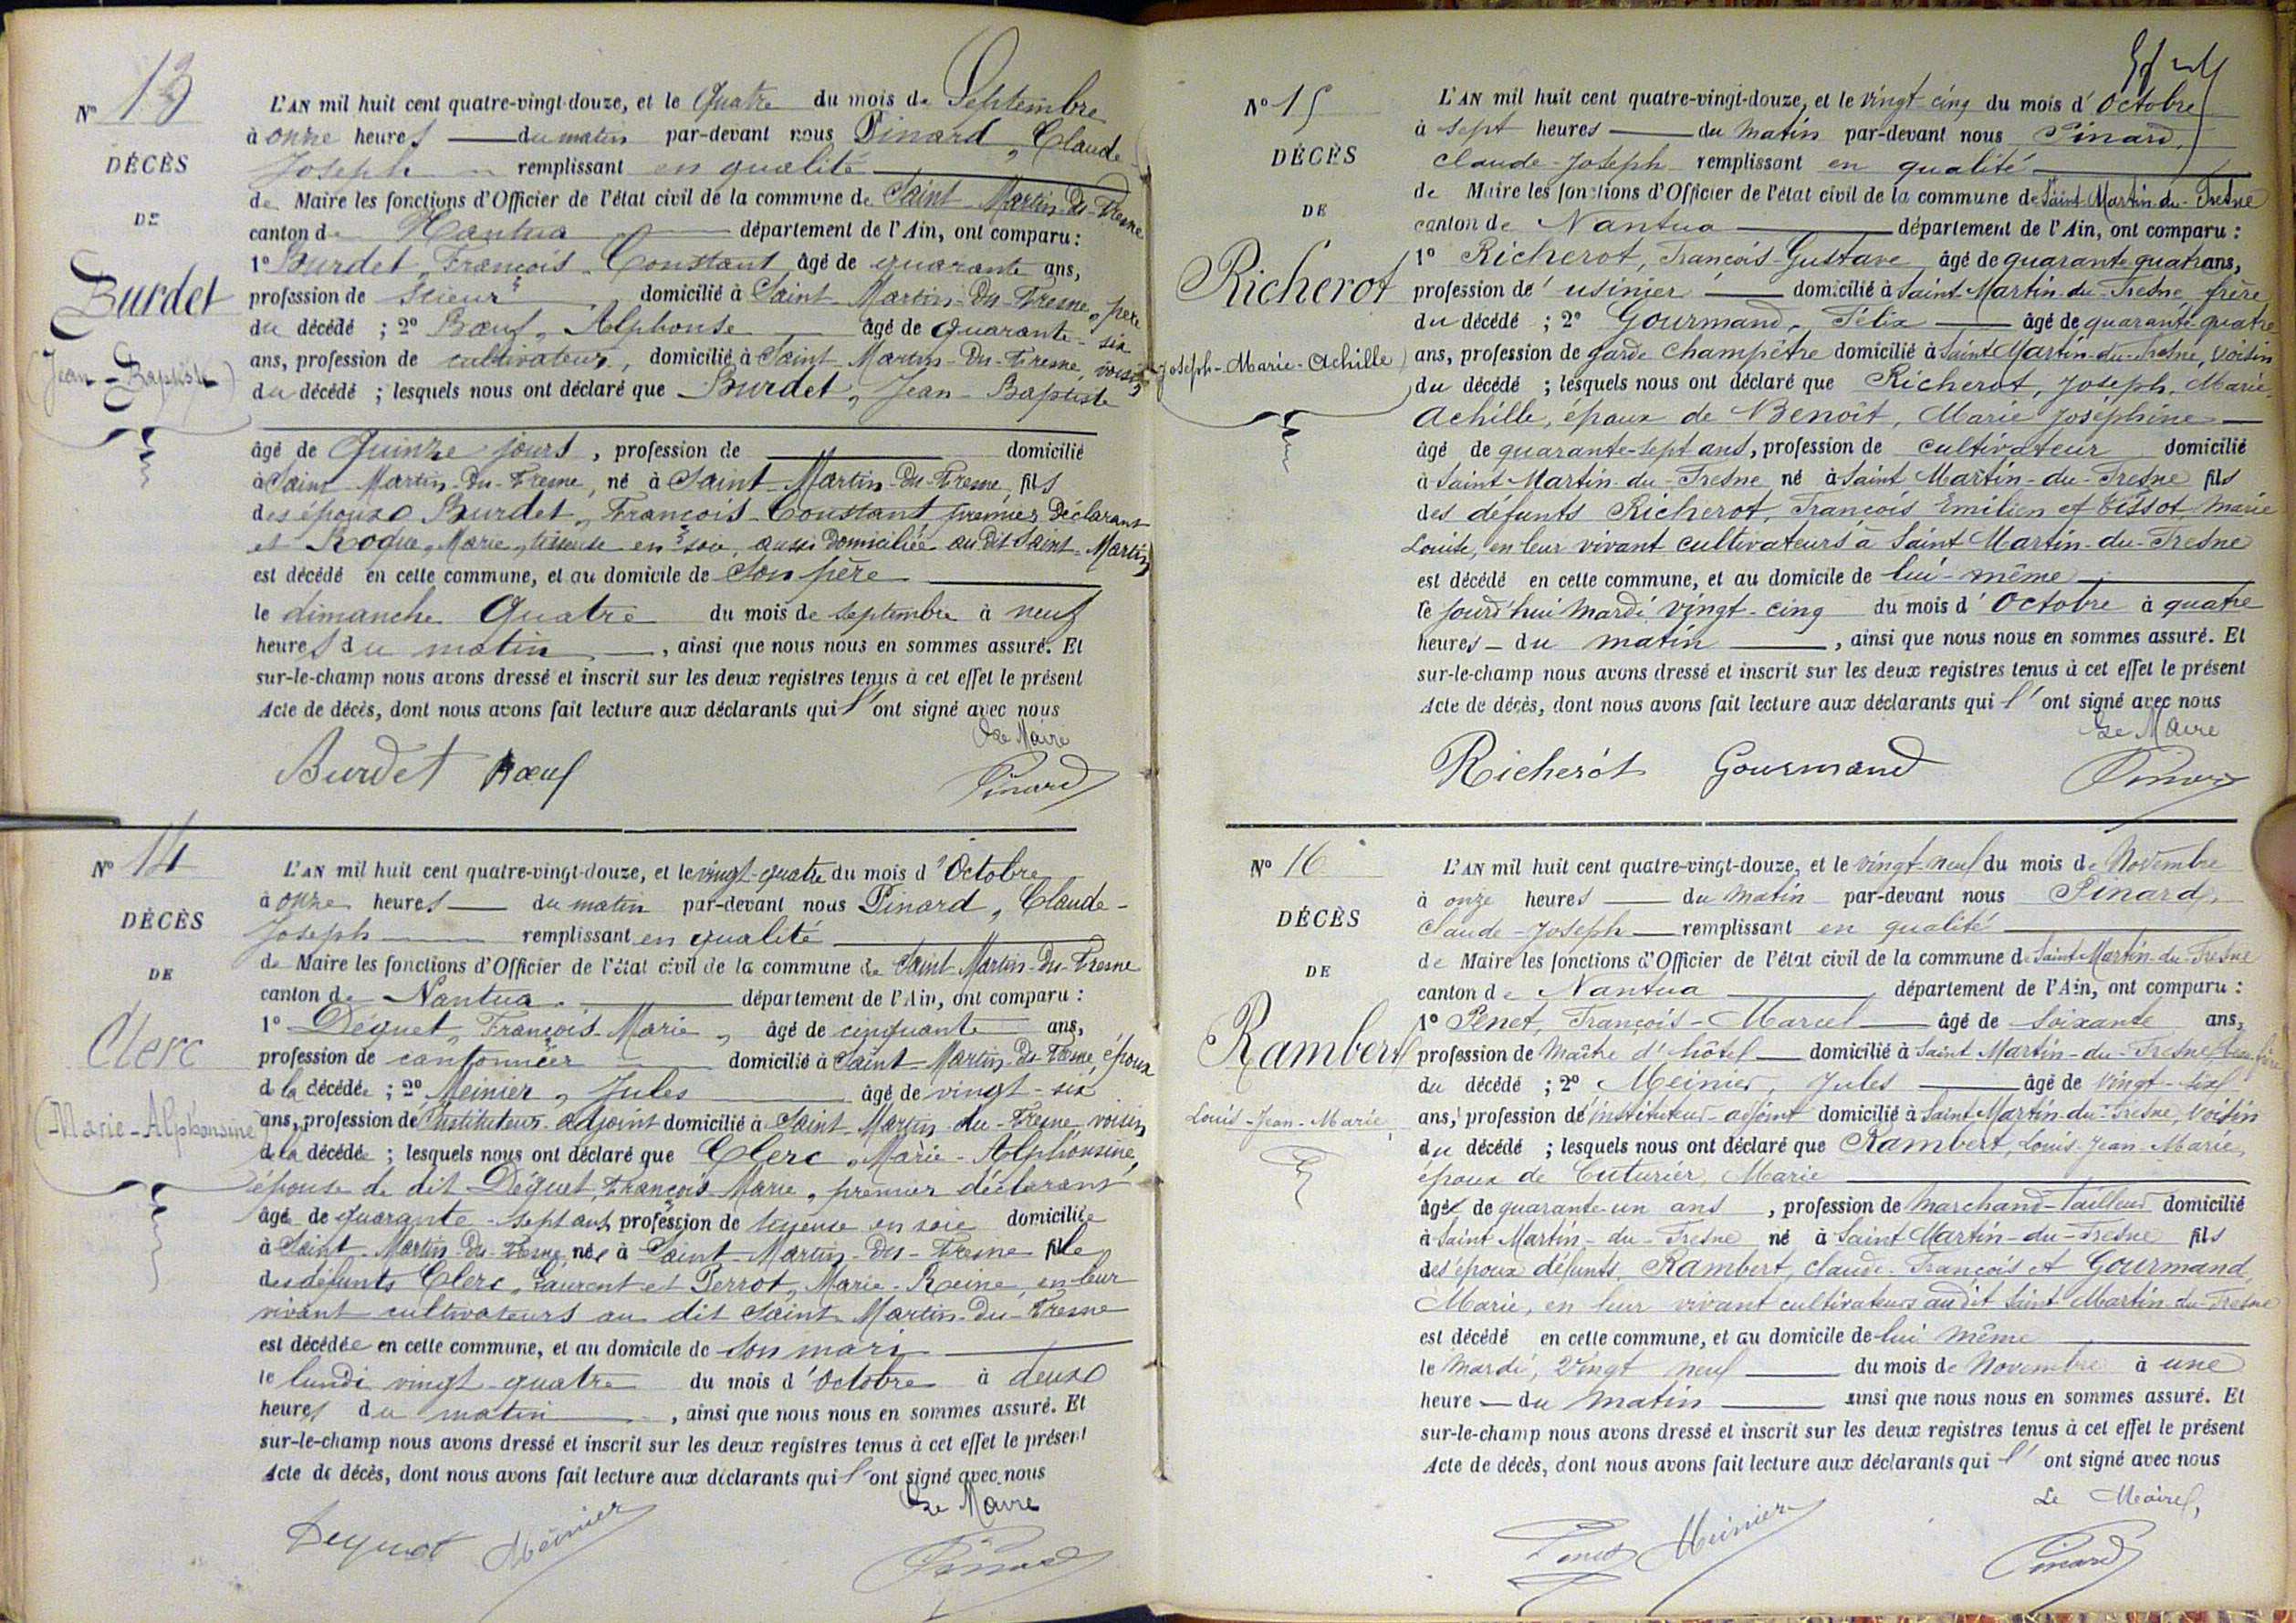 N° 13
DÉCÈS
DE
Burdet
(Jean-Baptiste)
L'AN mil huit cent quatre-vingt-douze, et le Quatre du mois de Septembre
à onze heures du matin par-devant nous Pinard, Claude-
Joseph remplissant en qualité
de Maire les fonctions d'Officier de l'état civil de la commune de Saint-Martin-du-Fresne
canton de Nantua département de l'Ain, ont comparu :
1° Burdet, François-Constant, âgé de quarante ans,
profession de scieur domicilié à Saint-Martin-du-Fresne, père
du décédé ; 2° Bœuf, Alphonse âgé de quarante-six
ans, profession de cultivateur, domicilié à Saint-Martin-du-Fresne, voisin
du décédé ; lesquels nous ont déclaré que Burdet, Jean-Baptiste
âgé de Quinze jours, profession de domicilié
à Saint-Martin-du-Fresne, né à Saint-Martin-du-Fresne, fils
des époux Burdet, François-Constant, premier déclarant
et Roque, Marie, tisseuse en soie, aussi domiciliée au dit Saint-Martin
est décédé en cette commune, et au domicile de son père
le dimanche Quatre du mois de septembre à neuf
heures du matin, ainsi que nous nous en sommes assuré. Et
sur-le-champ nous avons dressé et inscrit sur les deux registres tenus à cet effet le présent
Acte de décès, dont nous avons fait lecture aux déclarants qui l'ont signé avec nous
Le Maire
Burdet Bœuf Pinard
N° 14
DÉCÈS
DE
Clerc
(Marie-Alphonsine)
L'AN mil huit cent quatre-vingt-douze, et le vingt-quatre du mois d'Octobre
à onze heures du matin par-devant nous Pinard, Claude-
Joseph remplissant en qualité
de Maire les fonctions d'Officier de l'état civil de la commune de Saint-Martin-du-Fresne
canton de Nantua département de l'Ain, ont comparu :
1° Déquet, François-Marie, âgé de cinquante ans,
profession de cantonnier domicilié à Saint-Martin-du-Fresne, époux
de la décédée ; 2° Meinier, Jules âgé de vingt-six
ans, profession de Instituteur-adjoint domicilié à Saint-Martin-du-Fresne, voisin
de la décédée ; lesquels nous ont déclaré que Clerc, Marie-Alphonsine,
épouse de dit Déquet, François-Marie, premier déclarant
âgée de quarante-sept ans, profession de tisseuse en soie domiciliée
à Saint-Martin-du-Fresne, née à Saint-Martin-du-Fresne fille
des défunts Clerc, Laurent et Perrot, Marie-Reine, en leur
vivant cultivateurs au dit Saint-Martin-du-Fresne
est décédée en cette commune, et au domicile de son mari
le lundi vingt-quatre du mois d'Octobre à deux
heures du matin, ainsi que nous nous en sommes assuré. Et
sur-le-champ nous avons dressé et inscrit sur les deux registres tenus à cet effet le présent
Acte de décès, dont nous avons fait lecture aux déclarants qui l'ont signé avec nous
Le Maire
Dequet Meinier Pinard
N° 15
DÉCÈS
DE
Richerot
Joseph-Marie-Achille)
L'AN mil huit cent quatre-vingt-douze, et le vingt-cinq du mois d'Octobre
à sept heures du matin par-devant nous Pinard,
Claude-Joseph remplissant en qualité
de Maire les fonctions d'Officier de l'état civil de la commune de Saint-Martin-du-Fresne
canton de Nantua département de l'Ain, ont comparu :
1° Richerot, François-Gustave âgé de quarante-quatre ans,
profession de usinier domicilié à Saint-Martin-du-Fresne, frère
du décédé ; 2° Gourmand, Félix âgé de quarante-quatre
ans, profession de garde champêtre domicilié à Saint-Martin-du-Fresne, voisin
du décédé ; lesquels nous ont déclaré que Richerot, Joseph, Marie,
Achille, époux de Benoît, Marie Joséphine
âgé de quarante-sept ans, profession de cultivateur domicilié
à Saint-Martin-du-Fresne né à Saint Martin-du-Fresne fils
des défunts Richerot, François Emilien et Tissot, Marie
Louise, en leur vivant cultivateurs à Saint Martin-du-Fresne
est décédé en cette commune, et au domicile de lui-même
le jourd'hui mardi vingt-cinq du mois d'Octobre à quatre
heures du matin, ainsi que nous nous en sommes assuré. Et
sur-le-champ nous avons dressé et inscrit sur les deux registres tenus à cet effet le présent
Acte de décès, dont nous avons fait lecture aux déclarants qui l'ont signé avec nous
Le Maire
Richerot Gourmand Pinard
N° 16
DÉCÈS
DE
Rambert
Louis-Jean-Marie
L'AN mil huit cent quatre-vingt-douze, et le vingt-neuf du mois de Novembre
à onze heures du matin par-devant nous Pinard,
Claude-Joseph remplissant en qualité
de Maire les fonctions d'Officier de l'état civil de la commune de Saint Martin-du-Fresne
canton de Nantua département de l'Ain, ont comparu :
1° Penet, François-Marcel âgé de soixante ans,
profession de Maître d'hôtel domicilié à Saint Martin-du-Fresne, beau-frère
du décédé ; 2° Meinier, Jules âgé de vingt-six
ans, profession de instituteur-adjoint domicilié à Saint Martin-du-Fresne, voisin
du décédé ; lesquels nous ont déclaré que Rambert, Louis-Jean-Marie,
époux de Cuturier, Marie
âgé de quarante-un ans, profession de Marchand-tailleur domicilié
à Saint Martin-du-Fresne né à Saint Martin-du-Fresne fils
des époux défunts Rambert, Claude-François et Gourmand,
Marie, en leur vivant cultivateurs audit Saint Martin-du-Fresne
est décédé en cette commune, et au domicile de lui même
le Mardi, Vingt neuf du mois de Novembre à une
heure du matin ainsi que nous nous en sommes assuré. Et
sur-le-champ nous avons dressé et inscrit sur les deux registres tenus à cet effet le présent
Acte de décès, dont nous avons fait lecture aux déclarants qui l'ont signé avec nous
Le Maire,
Penet Meinier Pinard